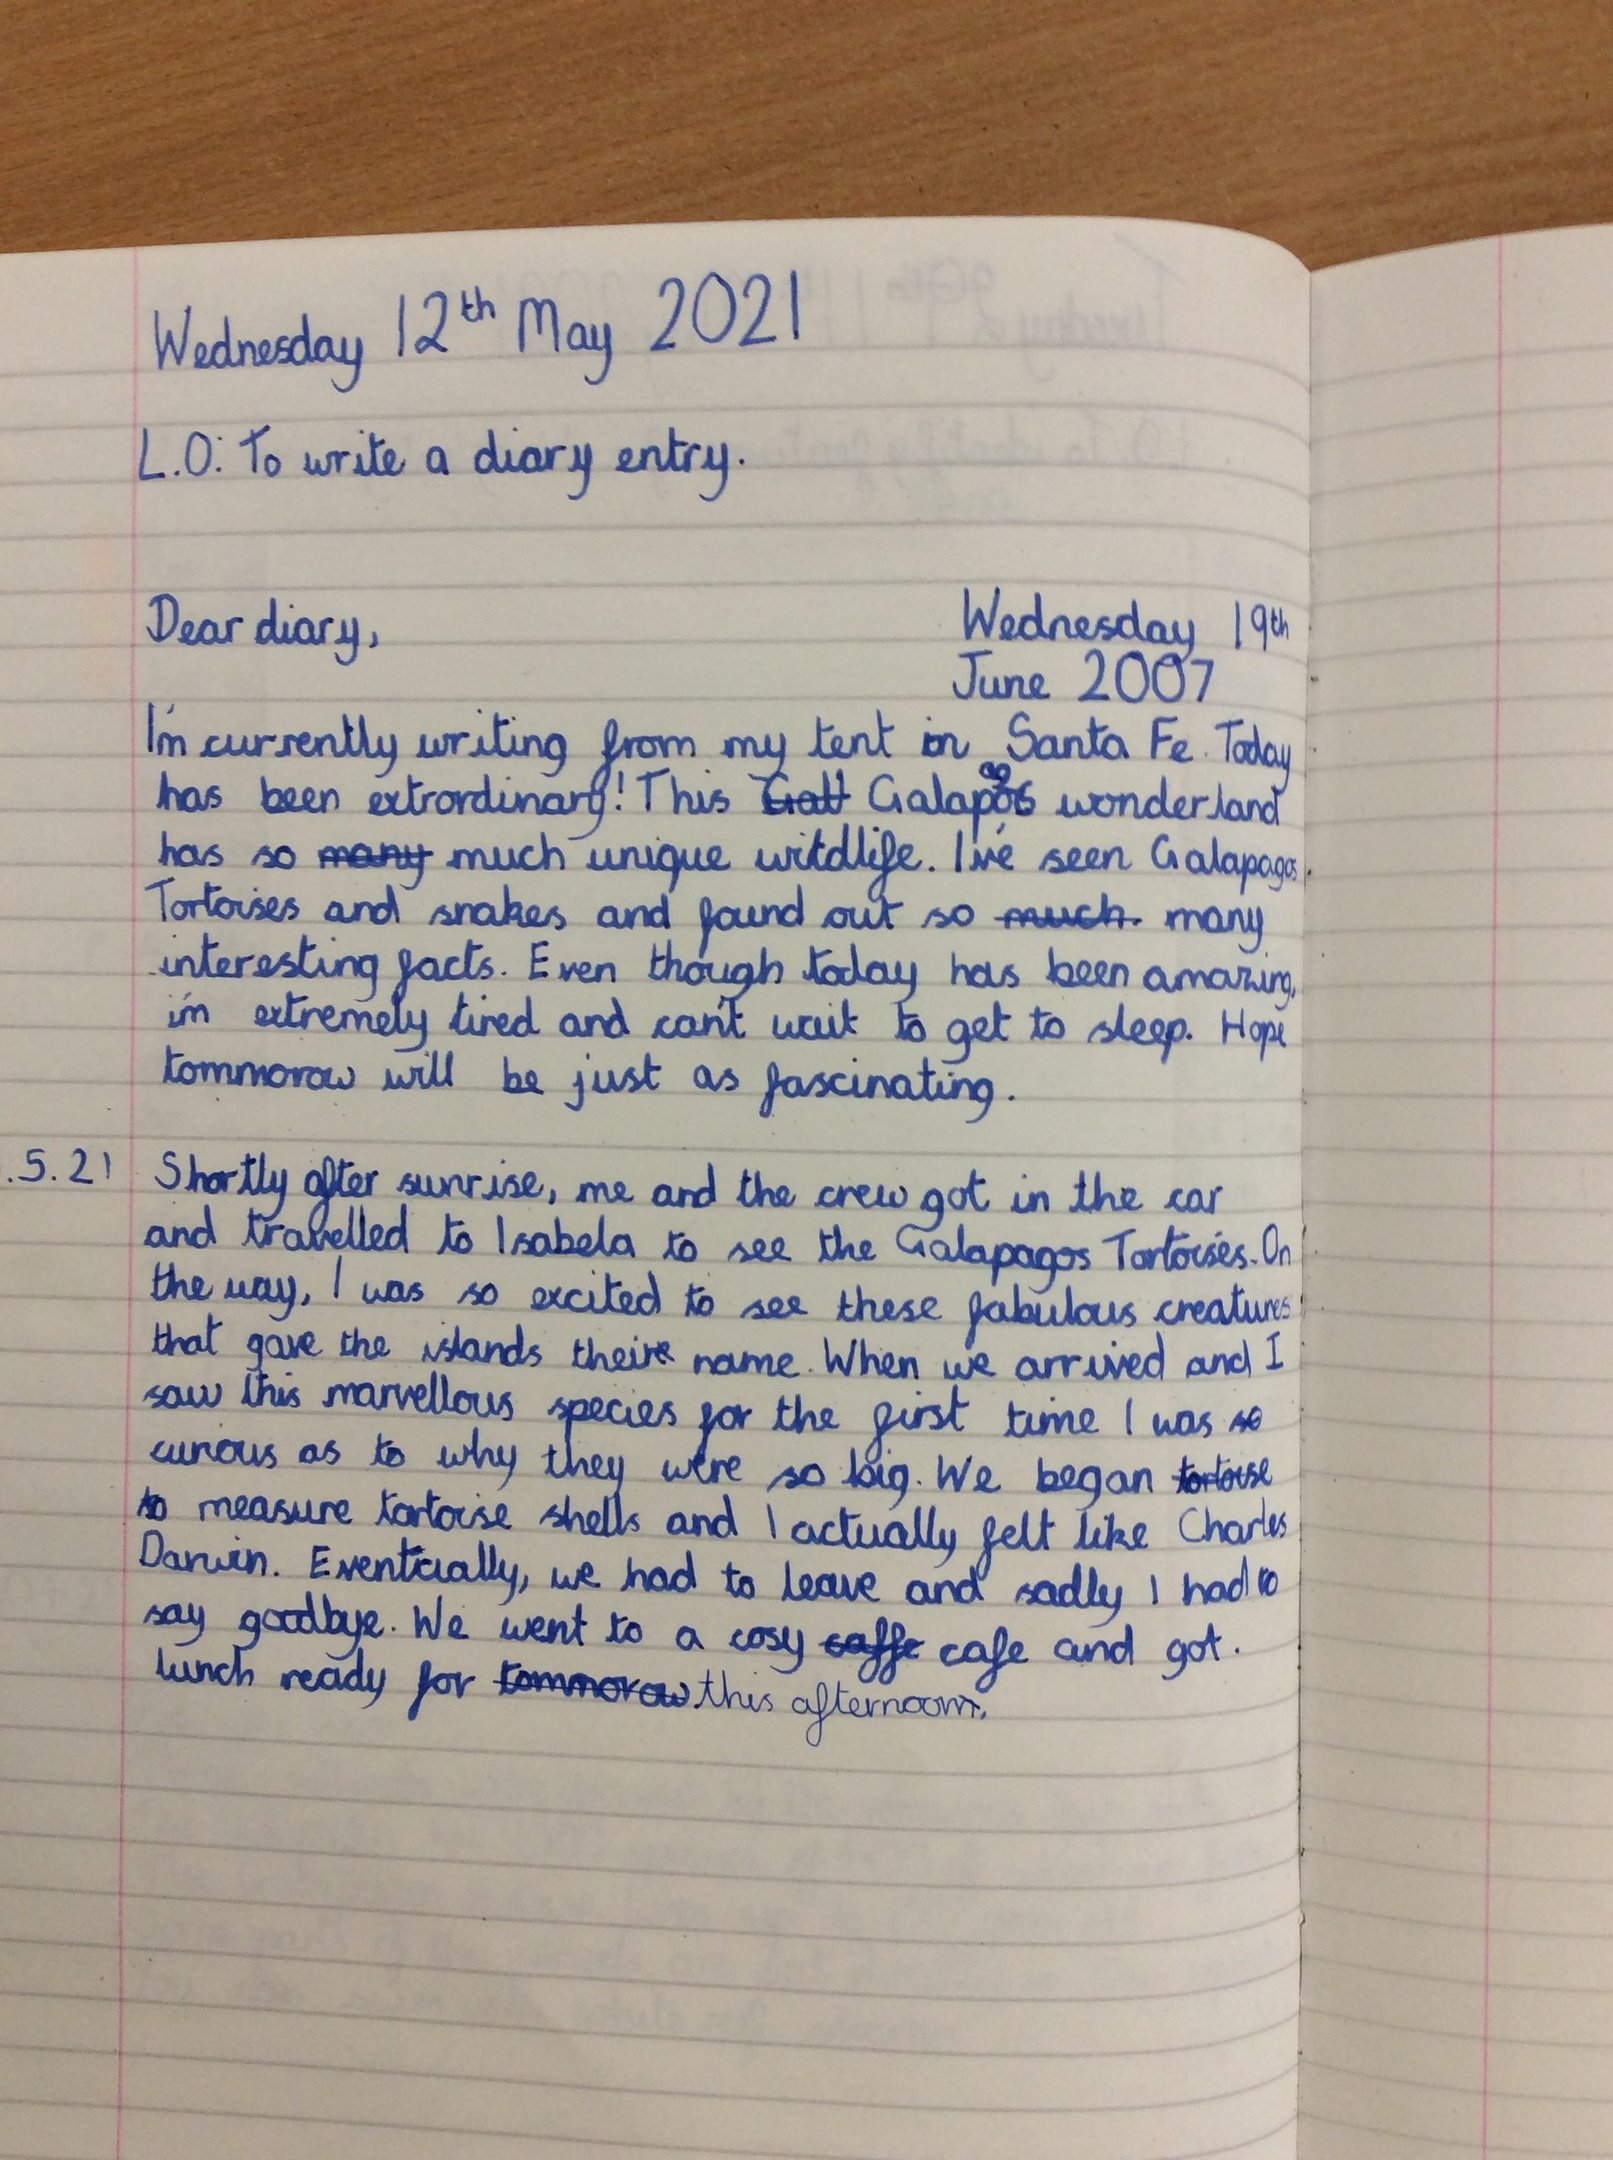 Wednesday 12th May 2021
L.O: To write a diary entry.
Dear diary, Wednesday 19th
June 2007
I'm currently writing from my tent in Santa Fe. Today
has been extrordinary! This Galapagos wonderland
has so many much unique wildlife. I've seen Galapagos
Tortoises and snakes and found out so much many
interesting facts. Even though today has been amazing,
i'm extremely tired and can't wait to get to sleep. Hope
tommorow will be just as fascinating.
.5.21 Shortly after sunrise, me and the crew got in the car
and travelled to Isabela to see the Galapagos Tortoises. On
the way, I was so excited to see these fabulous creatures
that gave the islands their name. When we arrived and I
saw this marvellous species for the first time I was so
curious as to why they were so big. We began tortoise
to measure tortoise shells and I actually felt like Charles
Darwin. Eventually, we had to leave and sadly I had to
say goodbye. We went to a cosy caffe cafe and got.
lunch ready for tommorow this afternoon.